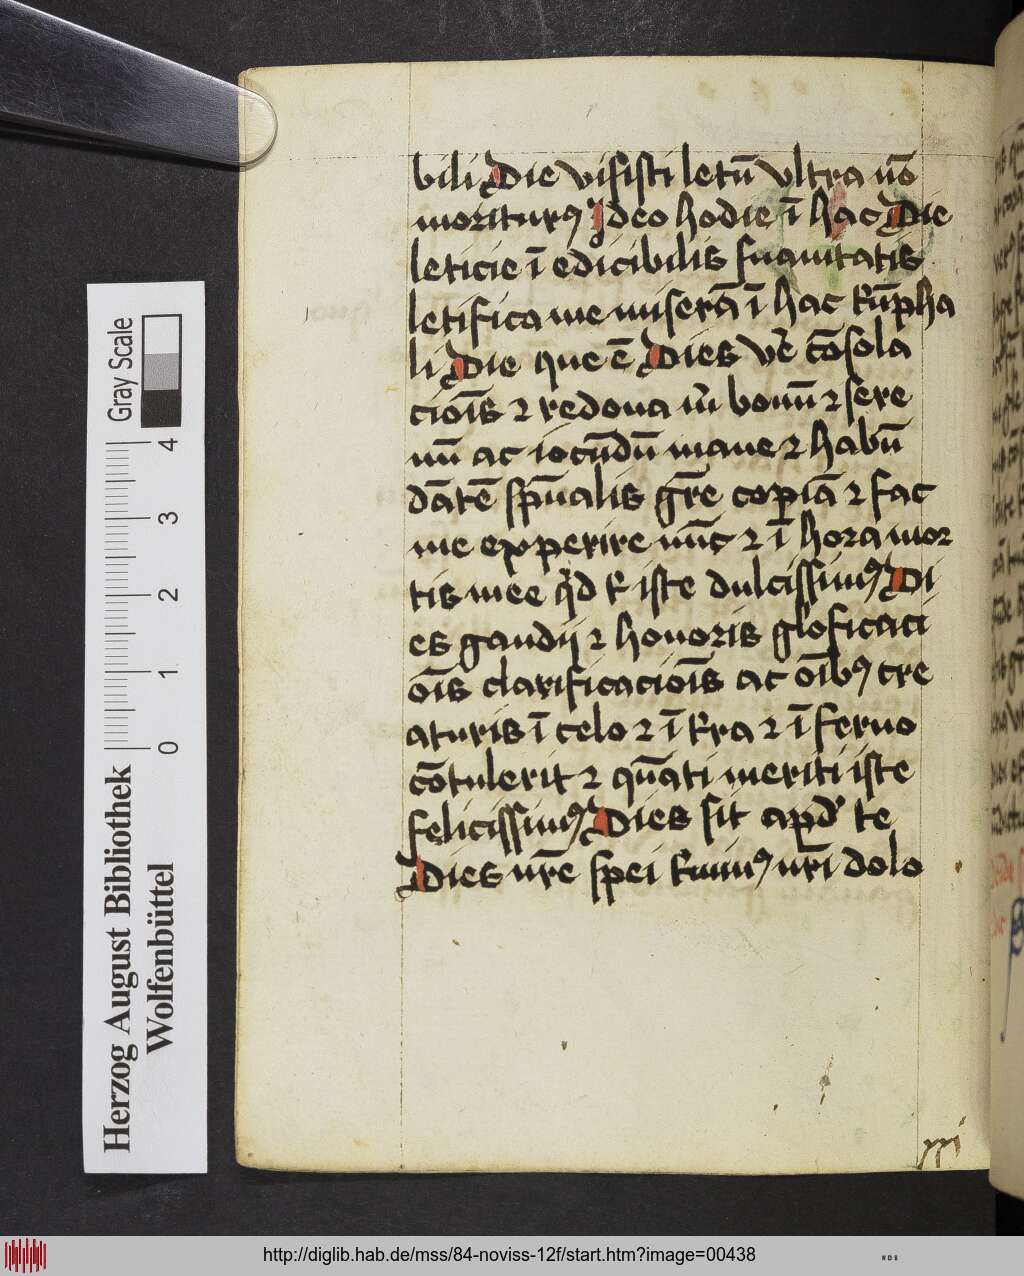 bili Die visisti letū vltra nō
moriturꝯ Ideo hodie ī hac Die
leticie ī edicibilis suauitatis
letifica me miserā ī hac tūpha
li Die que ē Dies vē cōsola
cioīs ⁊ redona m̄ bonū ⁊ sere
nū ac iocūdū mane ⁊ habū
dātē sp̄ualis gr̄e copiā ⁊ fac
me experire nūc ⁊ ī hora mor
tis mee qd t iste dulcissimꝯ Di
es gaudij ⁊ honoris gloficaci
oīs clarificacioīs ac oībꝯ cre
aturis ī celo ⁊ ī tra ⁊ ī ferno
cōtulerit ⁊ quāti meriti iste
felicissimꝯ Dies sit apd te
Dies nr̄e spei tminꝯ nr̄i dolo
xxi
Gray Scale
0 1 2 3 4
Herzog August Bibliothek
Wolfenbüttel
http://diglib.hab.de/mss/84-noviss-12f/start.htm?image=00438